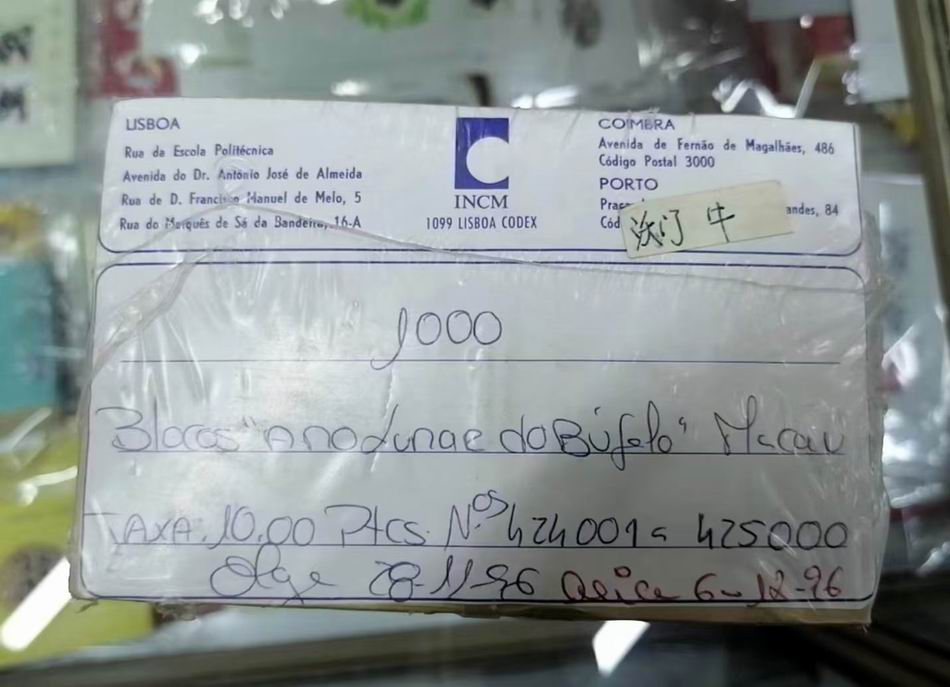 LISBOA
Rua da Escola Politécnica
Avenida do Dr. António José de Almeida
Rua de D. Francisco Manuel de Melo, 5
Rua do Marquês de Sá da Bandeira, 16-A
INCM
1099 LISBOA CODEX
COIMBRA
Avenida de Fernão de Magalhães, 486
Código Postal 3000
PORTO
84
沃门 牛
1000
Blocos "Ano Lunae do Búfalo" Macau
TAXA: 10.00 Ptcs. N.os 424001 a 425000
Olga 28-11-96 Alice 6-12-96